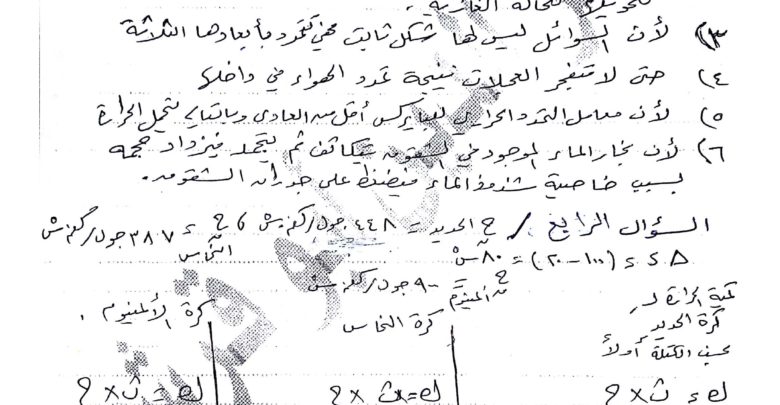 للحالة الغازية.
٣) لأن السوائل ليس لها شكل ثابت حتى تتمدد بأبعادها الثلاثة
٤) حتى لا تنفجر العجلات نتيجة تمدد الهواء في داخلها
٥) لأن معامل التمدد الحراري للبايركس أقل من العادي وبالتالي يتحمل الحرارة
٦) لأن بخار الماء الموجود في الشقوق يتكاثف ثم يتجمد فيزداد حجمه
بسبب خاصية شذوذ الماء فيضغط على جدران الشقوق.
السؤال الرابع / ح الحديد = ٤٤٨ جول/كغم.س ، ح النحاس = ٣٨٧ جول/كغم.س
Δ د = (١٠٠-٢٠) = ٨٠ س
ح المنيوم = ٩٠٠ جول/كغم.س
كمية الحرارة لـ
كرة الحديد
نحسب الكتلة أولاً
كرة النحاس
كرة الألمنيوم.
ك = ث × ح
ك = ث × ح
ك = ث × ح